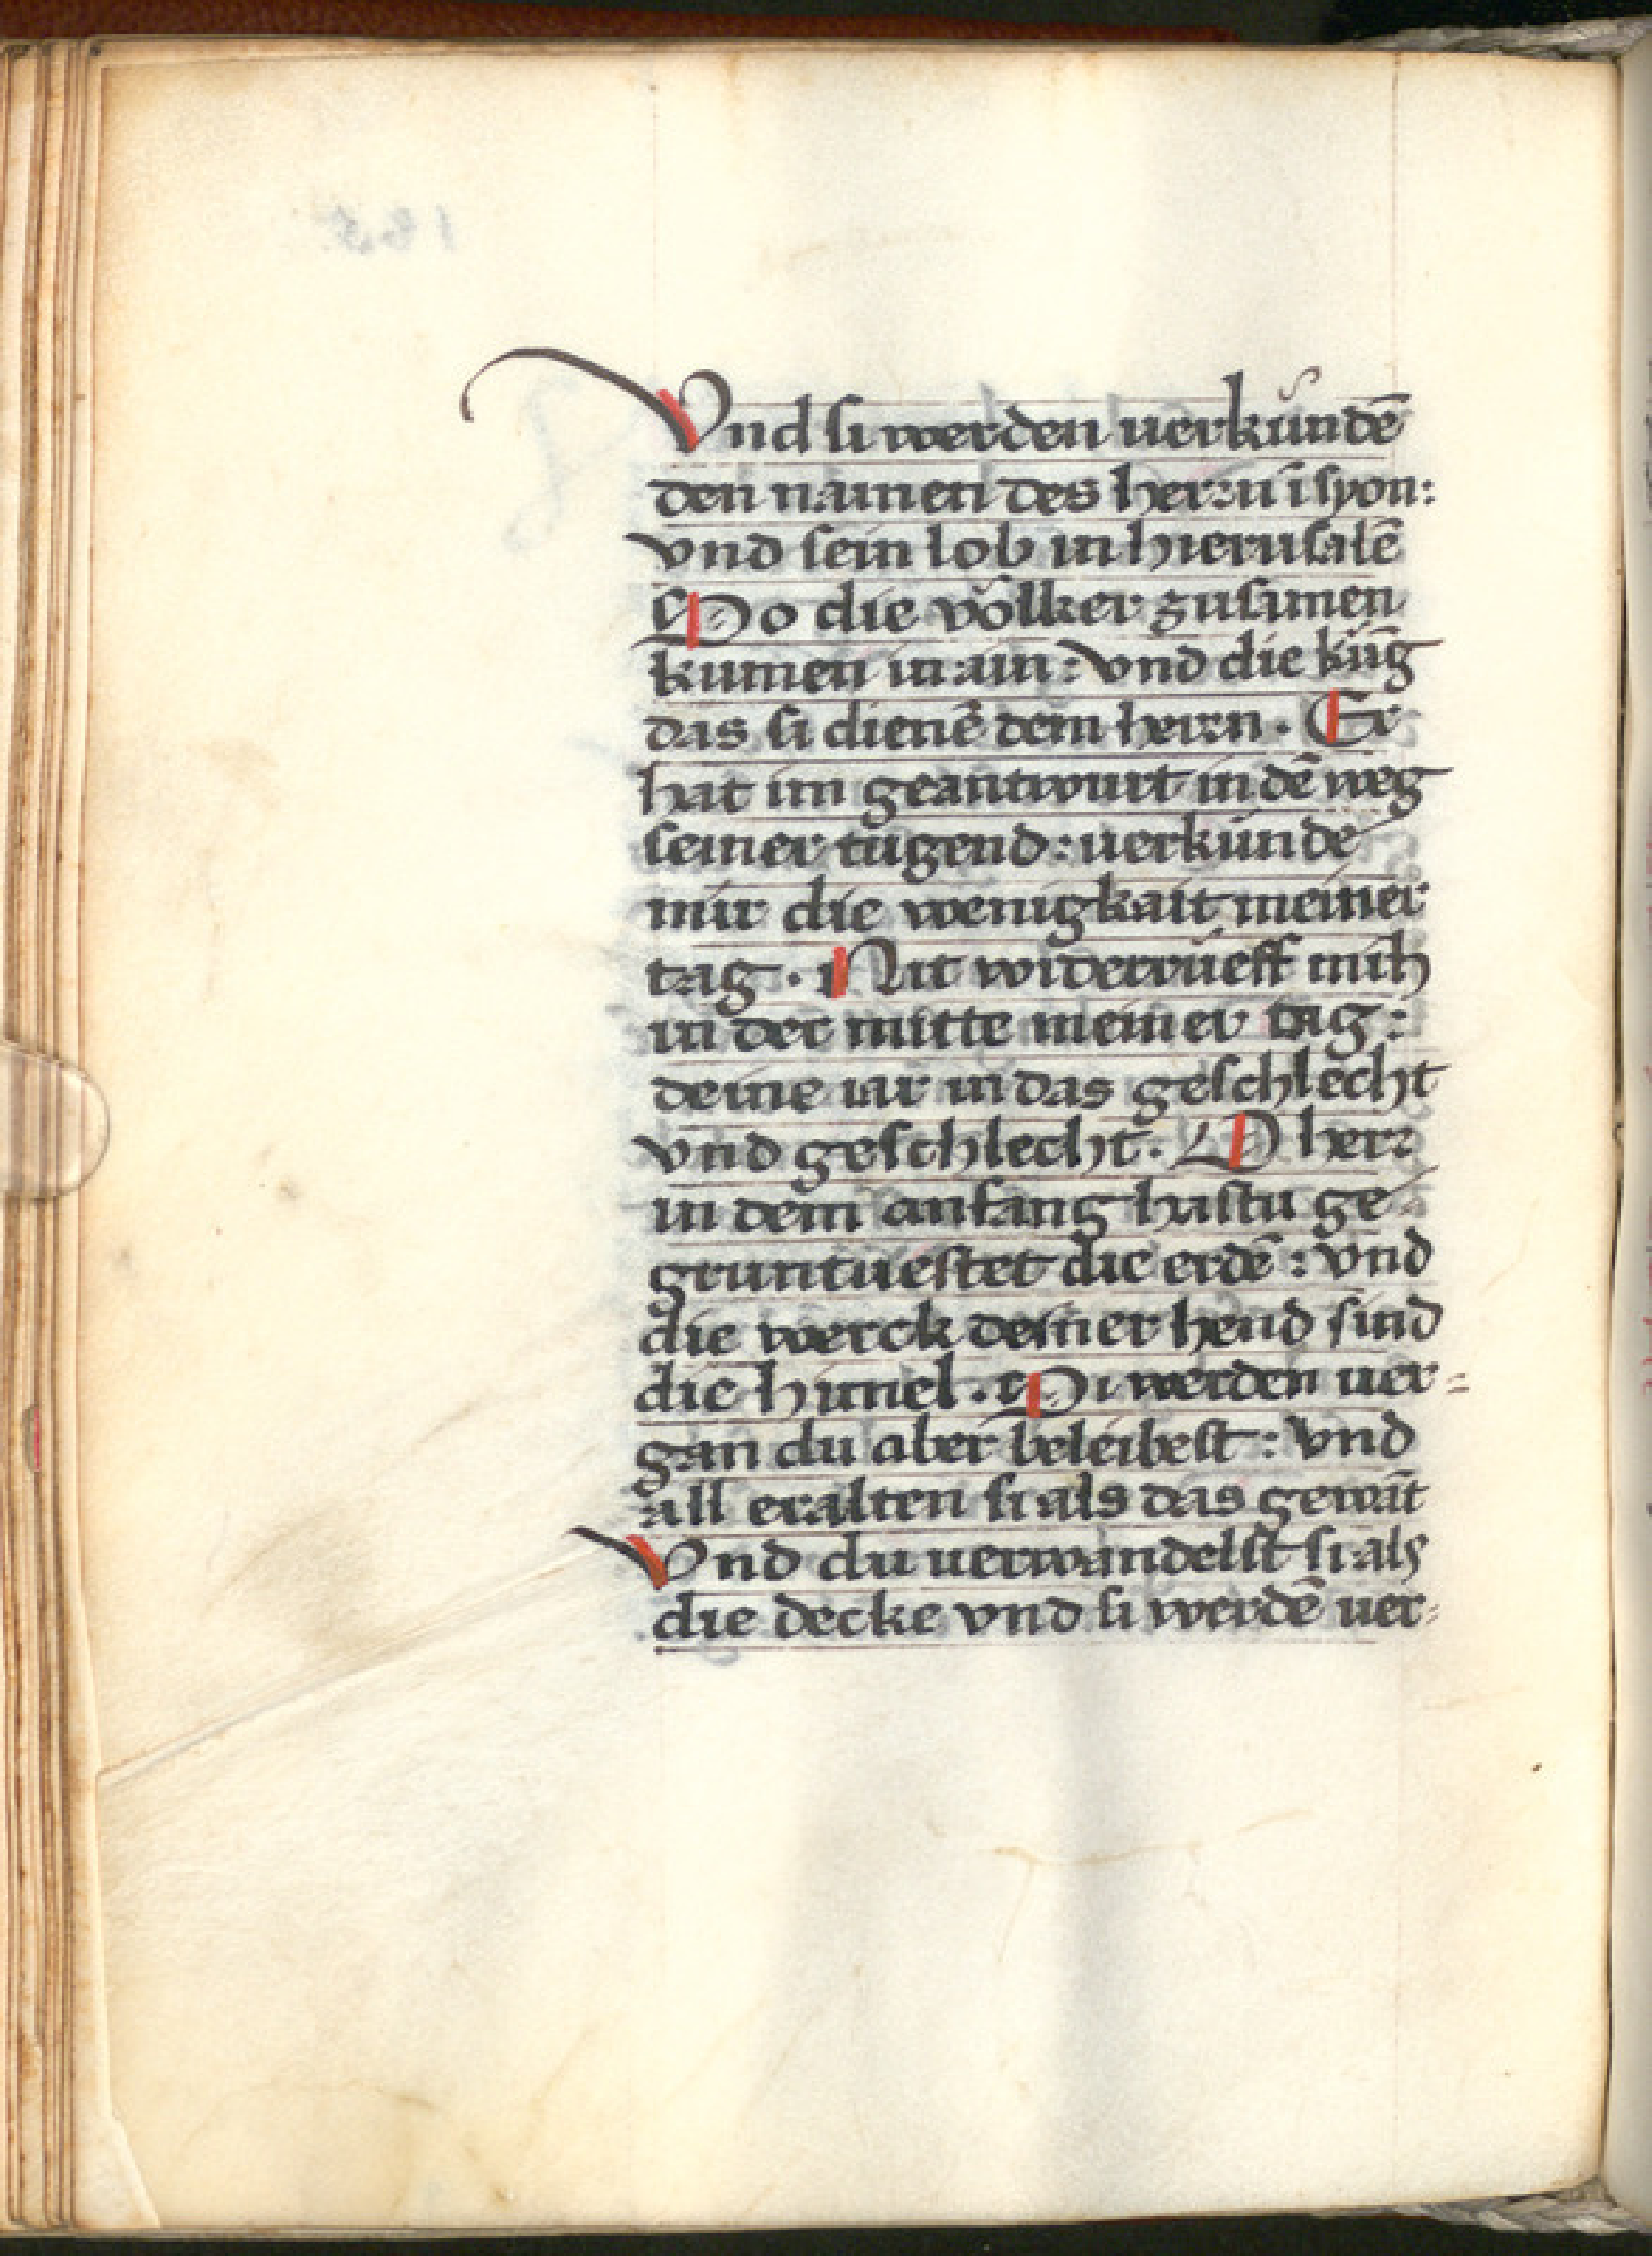 Vnd si werden uerkündē
den namen des herrn ī syon:
vnd sein lob in hierusalē
So die völker zusamen
kumen in ain: vnd die küng
das si dienē dem herrn. Er
hat im geantwurt in dē weg
seiner tugend: uerkünde
mir die wenigkait meiner
tag. Nit widerrüeff mich
in der mitte meiner tag:
deine iar in das geschlecht
vnd geschlecht. O herr
in dem anfang hastu ge
gruntuestet die erdē: vnd
die werck deiner hend sind
die himel. Si werden uer=
gan du aber beleibest: vnd
all eralten si als das gewāt
Vnd du uerwandelst si als
die decke vnd si werdē uer=